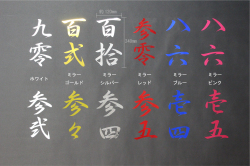 九 百 百 参 八 八
零 弐 拾 零 六 六
ホワイト ミラーゴールド ミラーシルバー ミラーレッド ミラーブルー ミラーピンク
参 参 参 参 壱 壱
弐 々 四 五 四 五